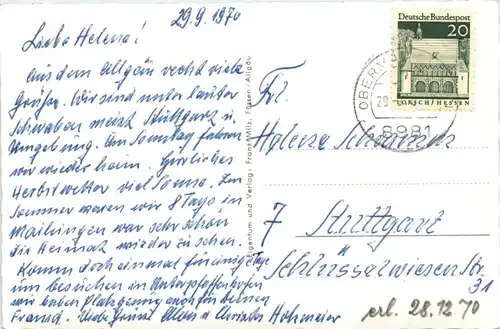 29.9.1970
Liebe Helene!
Aus dem Allgäu recht viele
Grüße. Wir sind unter lauter
Schwaben meist Stuttgart u
Umgebung. Am Sonntag fahren
wir wieder heim. Herrliches
Herbstwetter viel Sonne. Im
Sommer waren wir 8 Tage in
Mailingen war sehr schön
die Heimat wieder zu sehen.
Komm doch einmal für einige Tage
uns besuchen in Unterpfaffenhofen
wir haben Platz genug auch für deinen
Freund. Viele Grüße Alois u
Eigentum und Verlag: Franz Milz, Füssen / Allgäu
Deutsche Bundespost
20
LORSCH/HESSEN
8981
Frl.
Helene
7 Stuttgart
Schlüsselwiesen Str
31
erl. 28.12.70